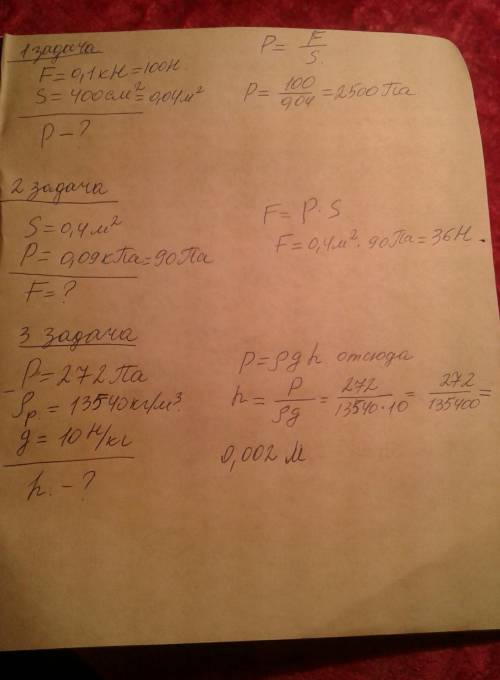 1 задача
F = 0,1 кН = 100Н.
S = 400 см² = 0,04 м²
P – ?
P = F/S.
P = 100/0,04 = 2500 Па
2 задача
S = 0,4 м²
P = 0,09 кПа = 90 Па
F = ?
F = P · S
F = 0,4 м² · 90 Па = 36 Н.
3 задача
P = 272 Па
ρр = 13540 кг/м³.
g = 10 Н/кг
h. – ?
P = ρgh. отсюда
h = P/ρg = 272/13540·10 = 272/135400 =
0,002 м